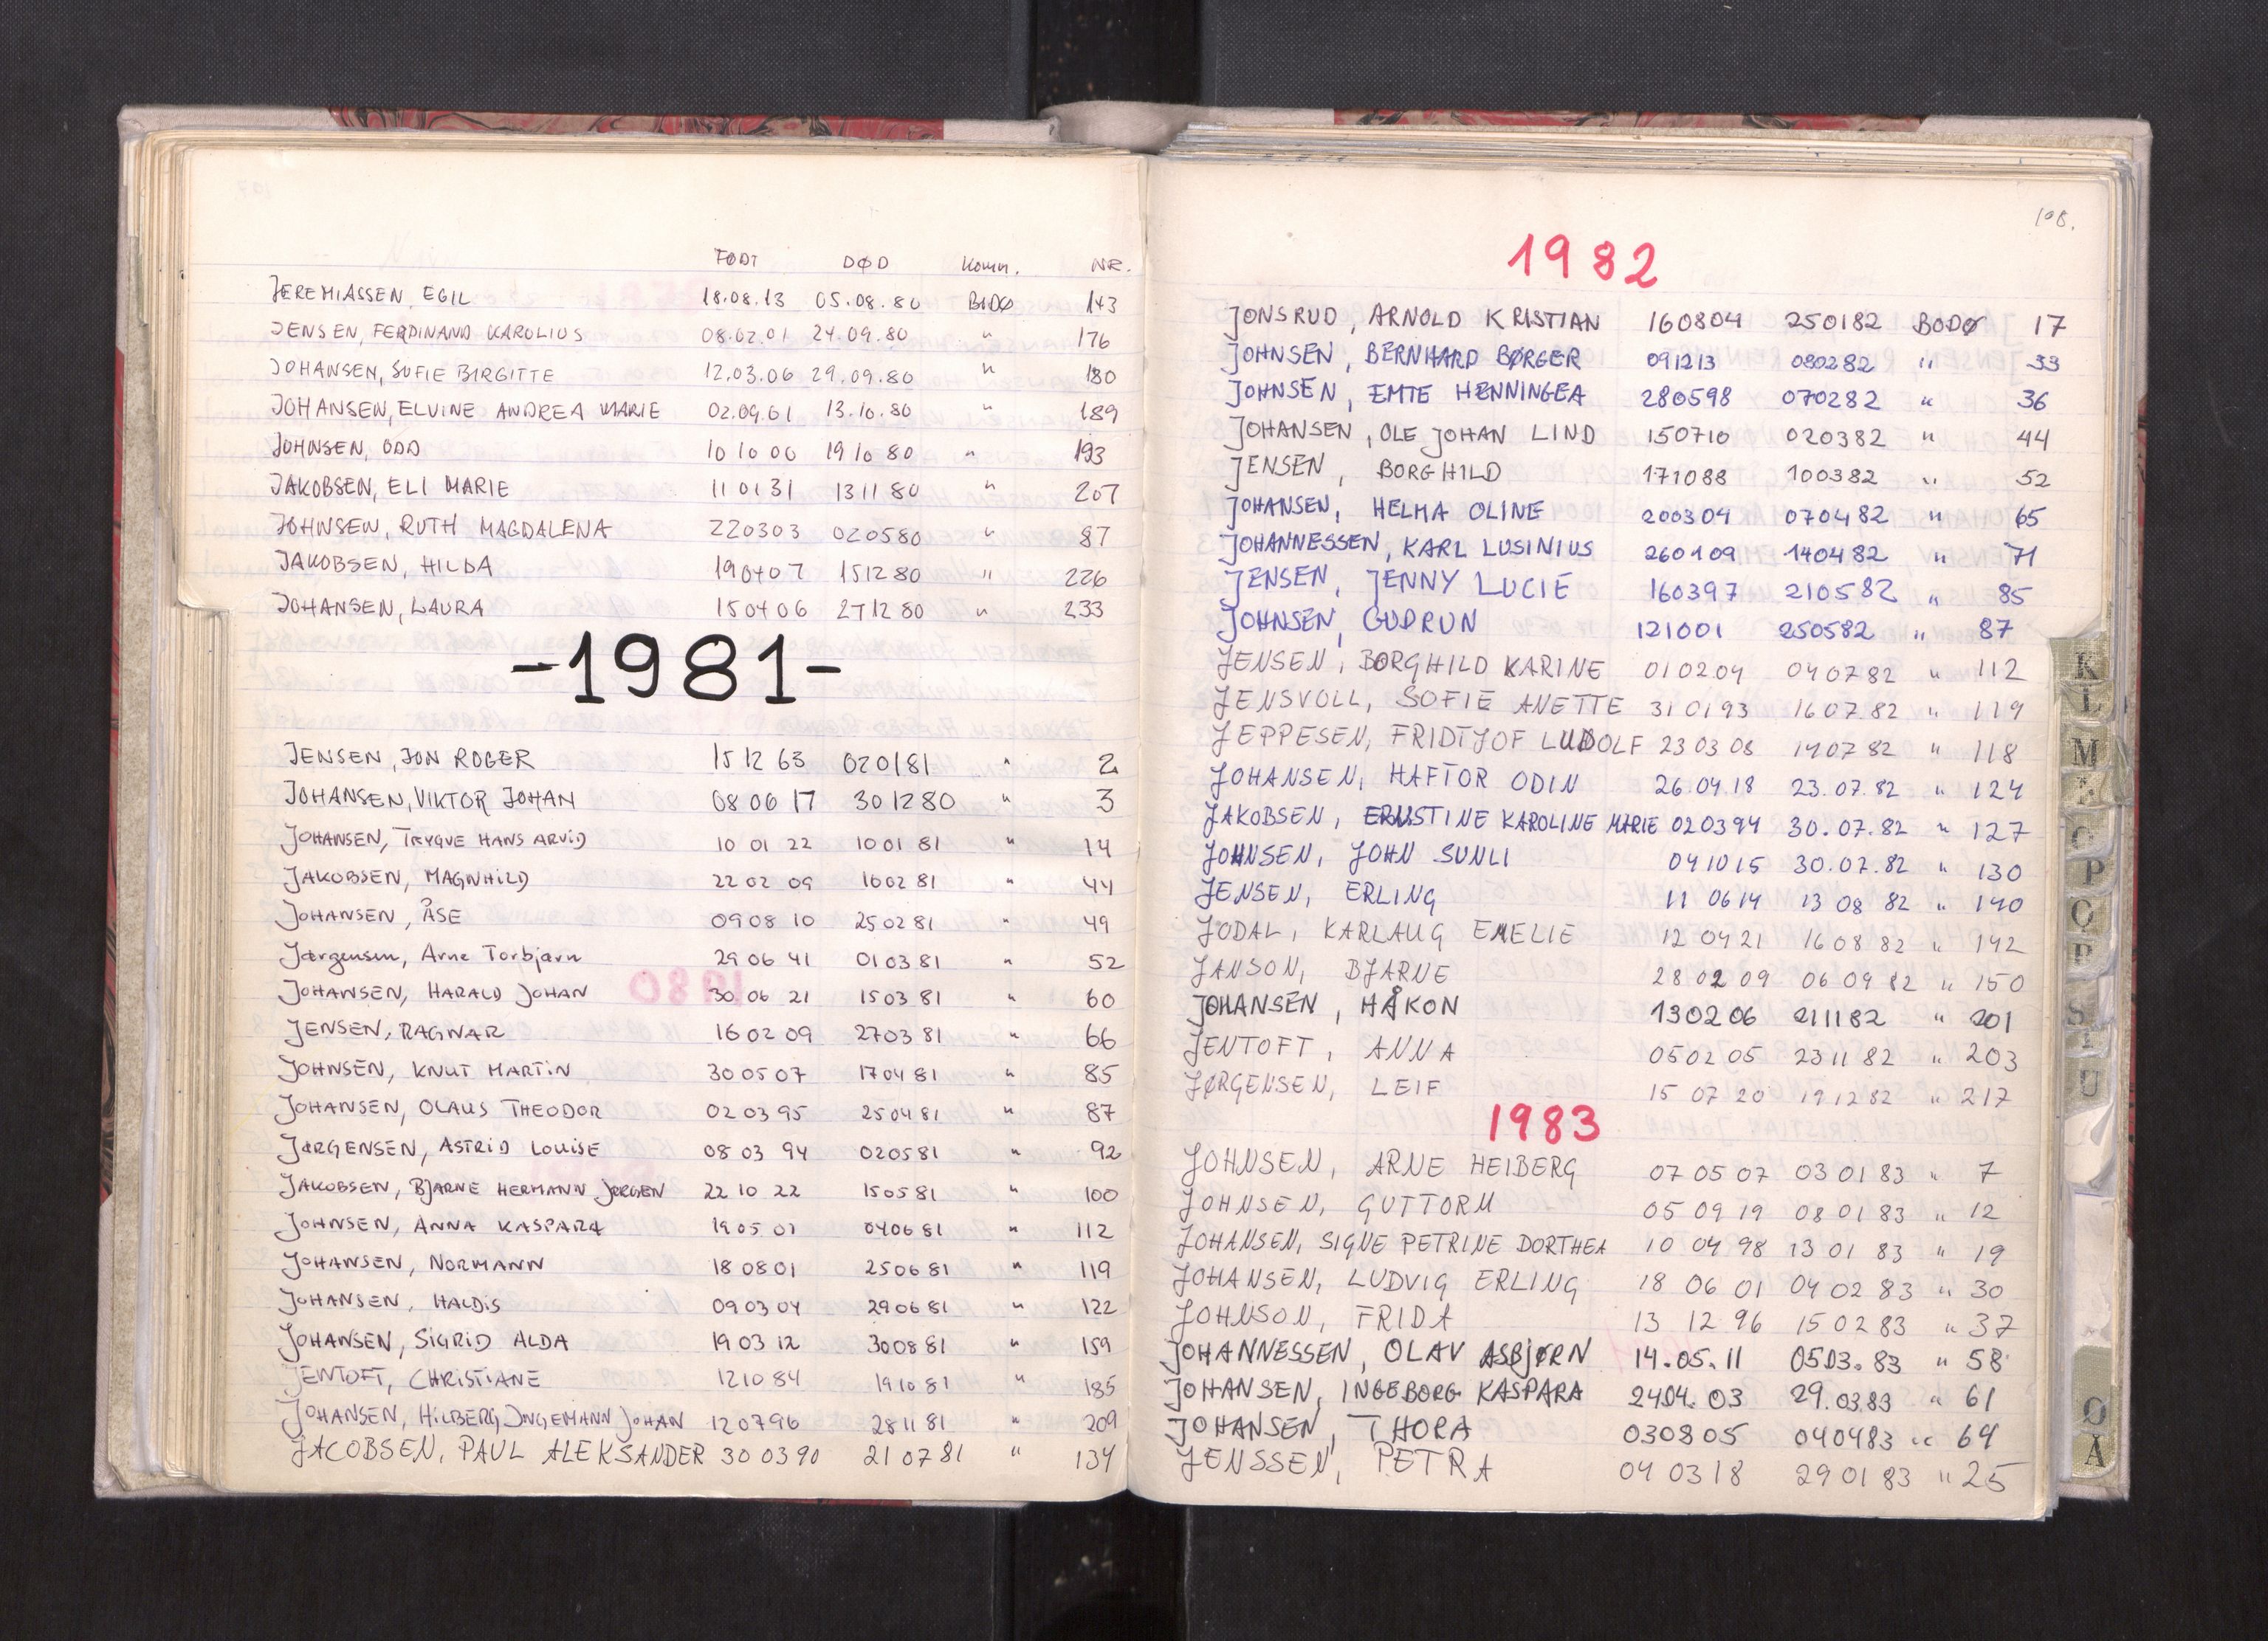 FØDT DØD Komm. NR.
JEREMIASSEN, EGIL 18.08.13 05.08.80 BODØ 143
JENSEN, FERDINAND KAROLIUS 08.02.01 24.09.80 " 176
JOHANSEN, SOFIE BIRGITTE 12.03.06 29.09.80 " 180
JOHANSEN, ELVINE ANDREA MARIE 02.09.01 13.10.80 " 189
JOHNSEN, ODD 10 10 00 19 10 80 " 193
JAKOBSEN, ELI MARIE 11 01 31 13 11 80 " 207
JOHNSEN, RUTH MAGDALENA 220303 020580 " 87
JAKOBSEN, HILDA 190407 151280 " 226
JOHANSEN, LAURA 150406 271280 " 233
-1981-
JENSEN, JON ROGER 15 12 63 020181 " 2
JOHANSEN, VIKTOR JOHAN 08 06 17 301280 " 3
JOHANSEN, TRYGVE HANS ARVID 10 01 22 1001 81 " 14
JAKOBSEN, MAGNHILD 22 02 09 1602 81 " 44
JOHANSEN, ÅSE 0908 10 2502 81 " 49
Jørgensen, Arne Torbjørn 29 06 41 0103 81 " 52
JOHANSEN, HARALD JOHAN 30 06 21 1503 81 " 60
JENSEN, RAGNAR 16 02 09 2703 81 " 66
JOHNSEN, KNUT MARTIN 30 05 07 1704 81 " 85
JOHANSEN, OLAUS THEODOR 02 03 95 2504 81 " 87
JØRGENSEN, ASTRID LOUISE 08 03 94 0205 81 " 92
JAKOBSEN, BJARNE HERMANN JØRGEN 22 10 22 1505 81 " 100
JOHNSEN, ANNA KASPARA 19 05 01 0406 81 " 112
JOHANSEN, NORMANN 18 08 01 2506 81 " 119
JOHANSEN, HALDIS 09 03 04 2906 81 " 122
JOHANSEN, SIGRID ALDA 19 03 12 3008 81 " 159
JENTOFT, CHRISTIANE 1210 84 1910 81 " 185
JOHANSEN, HILBERG INGEMANN JOHAN 12 07 96 2811 81 " 209
JACOBSEN, PAUL ALEKSANDER 30 03 90 21 07 81 " 134
108.
1982
JONSRUD, ARNOLD KRISTIAN 160804 250182 BODØ 17
JOHNSEN, BERNHARD BØRGER 091213 080282 " 33
JOHNSEN, EMTE HENNINGEA 280598 070282 " 36
JOHANSEN, OLE JOHAN LIND 150710 020382 " 44
JENSEN, BORGHILD 171088 100382 " 52
JOHANSEN, HELMA OLINE 200304 070482 " 65
JOHANNESSEN, KARL LUSINIUS 260109 140482 " 71
JENSEN, JENNY LUCIE 160397 210582 " 85
JOHNSEN, GUDRUN 121001 250582 " 87
JENSEN, BORGHILD KARINE 010204 040782 " 112
JENSVOLL, SOFIE ANETTE 310193 1607.82 " 119
JEPPESEN, FRIDTJOF LUDOLF 23 03 08 1407 82 " 118
JOHANSEN, HAFTOR ODIN 26.04.18 23.07.82 " 124
JAKOBSEN, ERNSTINE KAROLINE MARIE 020394 30.07.82 " 127
JOHNSEN, JOHN SUNLI 041015 30.07.82 " 130
JENSEN, ERLING 11 0614 13 08 82 " 140
JODAL, KARLAUG EMELIE 12 04 21 1608 82 " 142
JANSON, BJARNE 28 02 09 06 09 82 " 150
JOHANSEN, HÅKON 130206 211182 " 201
JENTOFT, ANNA 0502 05 2311 82 " 203
JØRGENSEN, LEIF 15 07 20 191282 " 217
1983
JOHNSEN, ARNE HEIBERG 07 05 07 03 01 83 " 7
JOHNSEN, GUTTORM 05 09 19 08 01 83 " 12
JOHANSEN, SIGNE PETRINE DORTHEA 10 04 98 13 01 83 " 19
JOHANSEN, LUDVIG ERLING 18 06 01 04 02 83 " 30
JOHNSON, FRIDA 13 12 96 15 02 83 " 37
JOHANNESSEN, OLAV ASBJØRN 14.05.11 0503.83 " 58
JOHANSEN, INGEBORG KASPARA 2404.03 29.03.83 " 61
JOHANSEN, THORA 030805 040483 " 64
JENSSEN, PETRA 04 0318 2901 83 " 25
K
L
M
O
P
Q
R
S
T
U
Ø
Å